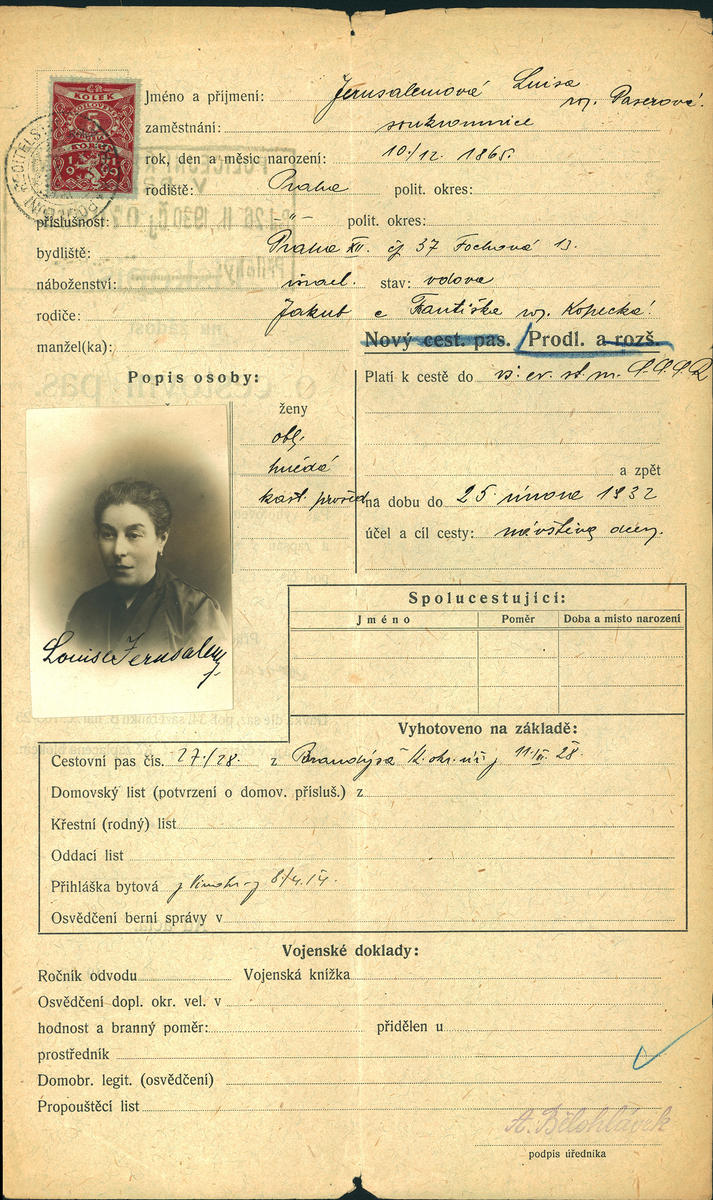 KOLEK
5
KORUN
1919
Jméno a příjmení: Jerusalemová Luisa
roz. Paserová.
zaměstnání: soukromnice
rok, den a měsíc narození: 10./12. 1865.
rodiště: Praha polit. okres:
příslušnost: -"- polit. okres:
bydliště: Praha XII. čj 37 Fochová 13.
náboženství: israel. stav: vdova
rodiče: Jakub a Františka roz. Kopecká!
manžel(ka):
Nový cest. pas. / Prodl. a rozš.
Popis osoby:
Platí k cestě do vš. ev. st. m. S.S.S.R
ženy
obl.
hnědá
kašt. prošed
a zpět
na dobu do 25. února 1932
účel a cíl cesty: návštěva dcery.
Louise Jerusalem
Spolucestující:
Jméno Poměr Doba a místo narození
Vyhotoveno na základě:
Cestovní pas čís. 27./28. z Brandýsa
Domovský list (potvrzení o domov. přísluš.) z
Křestní (rodný) list
Oddací list
Přihláška bytová 8/4.
Osvědčení berní správy v
Vojenské doklady:
Ročník odvodu Vojenská knížka
Osvědčení dopl. okr. vel. v
hodnost a branný poměr: přidělen u
prostředník
Domobr. legit. (osvědčení)
Propouštěcí list
A. Bělohlávek
podpis úředníka